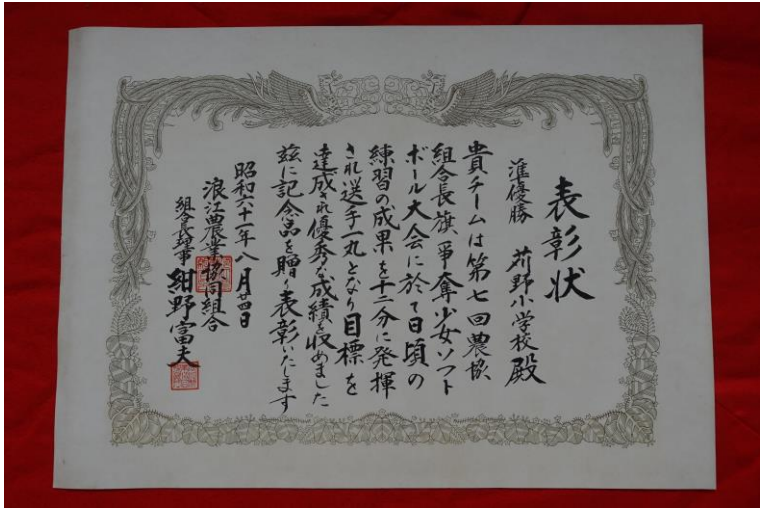 表彰状
準優勝 苅野小学校 殿
貴チームは第七回農協
組合長旗争奪少女ソフト
ボール大会に於て日頃の
練習の成果を十二分に発揮
され選手一丸となり目標を
達成され優秀な成績を収めました
茲に記念品を贈り表彰いたします
昭和六十一年八月廿四日
浪江農業協同組合
組合長理事 紺野富夫